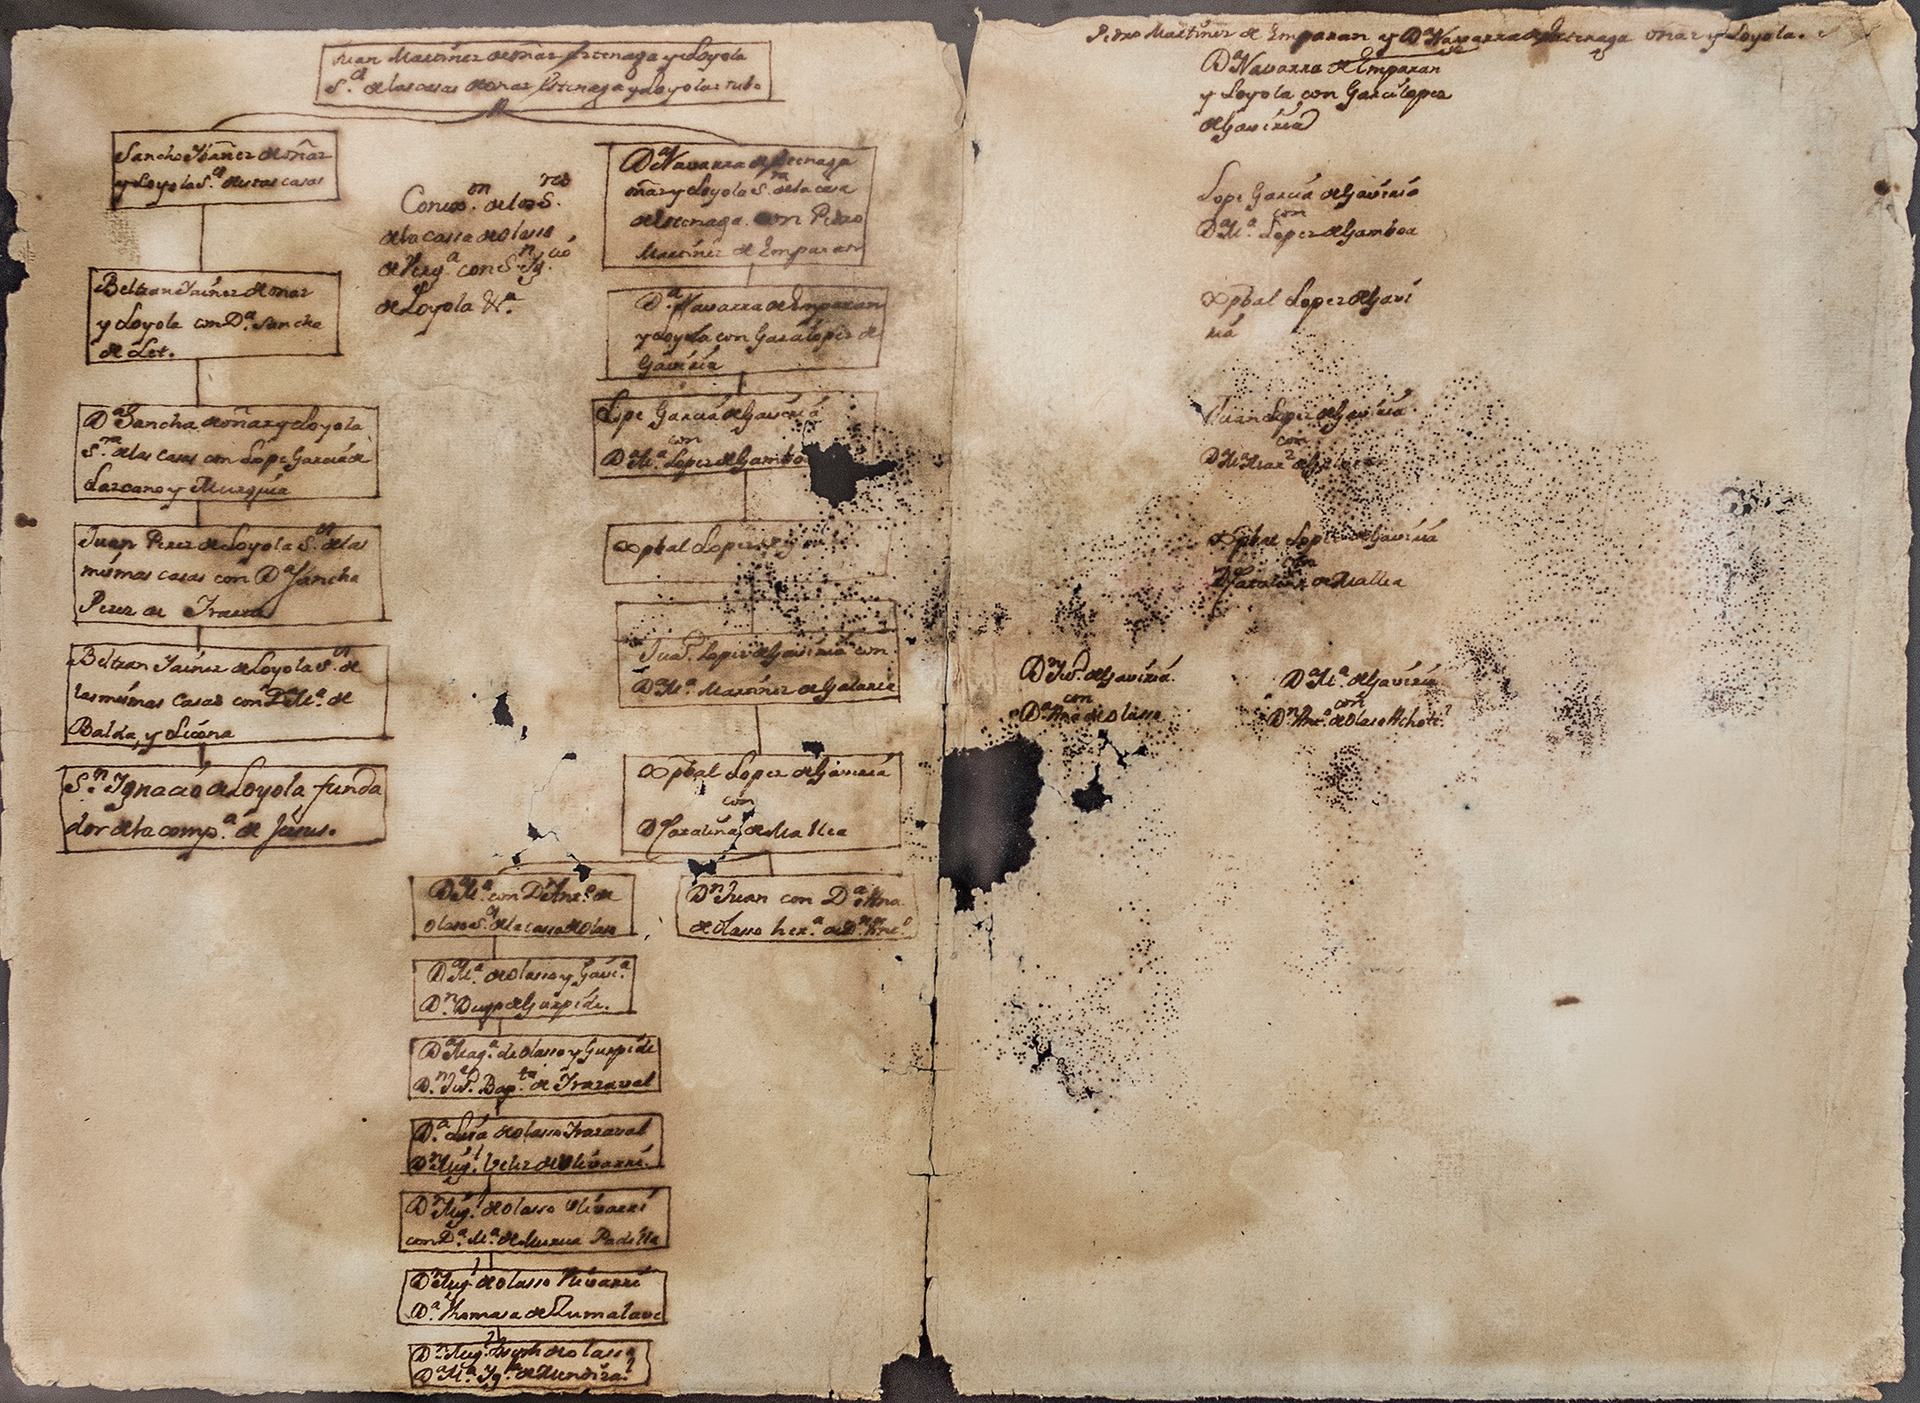 Juan Martinez de oñaz Iztenaga y Loyola
S.r de las casas de oñaz Iztenaga y Loyola z tubo
Sancho Ibañez de oñaz
y Loyola S.r de estas casas
Beltran Iañez de onaz
y Loyola con D.a Sancha
de Let.
D.a Sancha de oñaz y Loyola
S.ra de las casas con Lope Garcia de
Lazcano y Murguia
Juan Perez de Loyola S.or de las
mismas casas con D.a Sancha
Perez de Iraeta
Beltran Iainez de Loyola S.or de
las mismas casas con D.a M.a de
Balda, y Licona
S.n Ignacio de Loyola funda
dor de la comp.a de Jesus.
Conex.on de los S.res
de la cassa de olasso
de Verg.a con S.n Ig.cio
de Loyola &.a
D.a Navarra de Iztenaga
oñaz y Loyola S.ra de la casa
de Iztenaga con Pedro
Martinez de Emparan
D.a Navarra de Emparan
y Loyola con Garcilopez de
Gaviria
Lope Garcia de Gaviria
con
D.a M.a Lopez de Gamboa
Xptbal Lopez
Juº. Lopez de Gaviria con
D.a M.a Martinez de Galarza
Xptbal Lopez de Gaviria
con
D.a Catalina de Mallea
D.a M.a con D.n Anz.o de
olaso S.r de la cassa de olaso
D.n Juan con D.a Ana
de olasso her.a de D.n Anz.o
D.a M.a de olasso y Gavi.a
D.n Diego de Gaspide.
D.a Mag.a de olasso y Guspide
D.n Juº. Bap.ta de Irazaval
D.a Luisa de olasso Irazaval
D.n Mig.l Velez de olivarri.
D.n Mig.l de olasso Ulivarri
con D.a M.a de Murua Padilla
D.n Mig.l de olasso Ulivarri
D.a Thomasa de Zumalave
D.n Mig.l Joseph de olasso
D.a M.a Ig.a de Mendiza.l
Pedro Martinez de Emparan y D.a Navarra de Iztenaga oñaz y Loyola.
D.a Navarra de Emparan
y Loyola con Garcilopez
de Gaviria
Lope Garcia de Gaviria
con
D.a M.a Lopez de Gamboa
Xptbal Lopez de Gavi
ria
Juan Lopez de Gaviria
con
D.a M.a Mar.z de
Xptbal Lopez de Gaviria
con
D.a Catalina de Mallea
D.n Juº. de Gaviria
con
D.a Ana de olasso
D.a M.a de Gaviria
con
D.n Anz.o de olaso